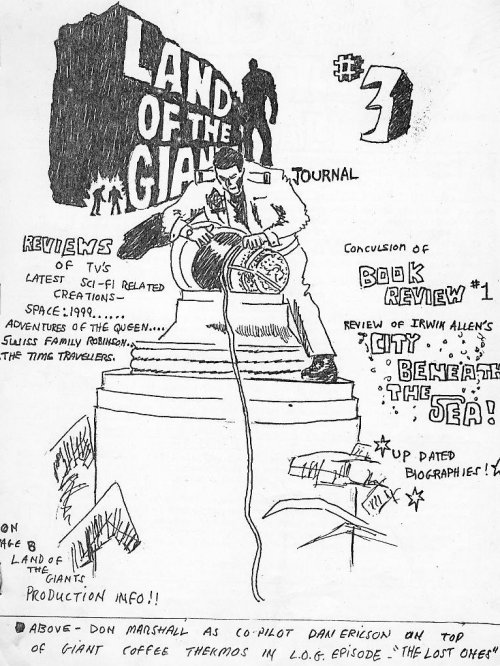 LAND
OF THE
GIAN
#3
JOURNAL
REVIEWS
OF TV'S
LATEST SCI-FI RELATED
CREATIONS-
SPACE:1999......
ADVENTURES OF THE QUEEN....
SWISS FAMILY ROBINSON..
THE TIME TRAVELLERS.
ConcuLsion OF
BOOK
REVIEW #1
REVIEW OF IRWIN ALLEN'S
CITY
BENEATH
THE
SEA!
UP DATED
BIOGRAPHIES!
ON
AGE 8
LAND OF
THE
GIANTS
PRODUCTION INFO!!
ABOVE - DON MARSHALL AS CO-PILOT DAN ERICSON ON TOP
OF GIANT COFFEE THERMOS IN L.O.G. EPISODE - "THE LOST ONES"